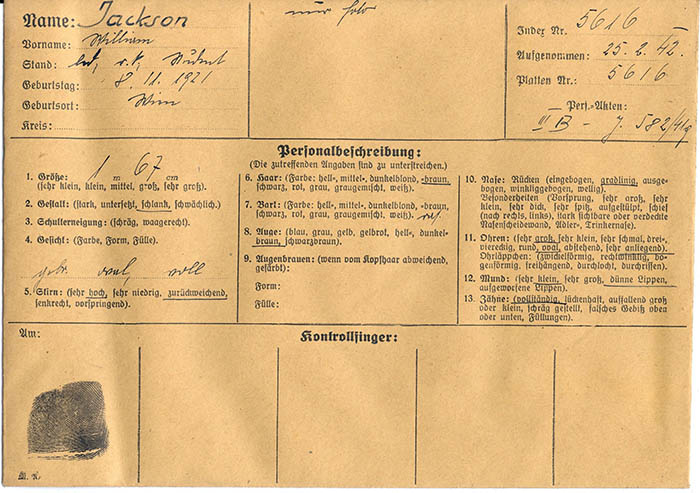 Name: Jackson
Vorname: William
Stand: led, r.k, Student
Geburtstag: 8. 11. 1921
Geburtsort: Wien
Kreis:
nur
Index Nr. 5616
Aufgenommen: 25. 2. 42.
Platten Nr.: 5616
Pers.-Akten:
III B - J. 582/41g
Personalbeschreibung:
(Die zutreffenden Angaben sind zu unterstreichen.)
1. Größe: 1 m 67 cm
(sehr klein, klein, mittel, groß, sehr groß).
2. Gestalt: (stark, untersetzt, schlank, schwächlich).
3. Schulterneigung: (schräg, waagerecht).
4. Gesicht: (Farbe, Form, Fülle).
gebr. oval, voll
5. Stirn: (sehr hoch, sehr niedrig, zurückweichend,
senkrecht, vorspringend).
6. Haar: (Farbe: hell-, mittel-, dunkelblond, -braun,
schwarz, rot, grau, graugemischt, weiß).
7. Bart: (Farbe: hell-, mittel-, dunkelblond, -braun,
schwarz, rot, grau, graugemischt, weiß). ras.
8. Auge: (blau, grau, gelb, gelbrot, hell-, dunkel-
braun, schwarzbraun).
9. Augenbrauen: (wenn vom Kopfhaar abweichend,
gefärbt):
Form:
Fülle:
10. Nase: Rücken (eingebogen, gradlinig, ausge-
bogen, winkliggebogen, wellig).
Besonderheiten (Vorsprung, sehr groß, sehr
klein, sehr dick, sehr spitz, aufgestülpt, schief
(nach rechts, links), stark sichtbare oder verdeckte
Nasenscheidewand, Adler-, Trinkernase).
11. Ohren: (sehr groß, sehr klein, sehr schmal, drei-,
viereckig, rund, oval, abstehend, sehr anliegend).
Ohrläppchen: (zwickelförmig, rechtwinklig, bo-
genförmig, freihängend, durchlocht, durchrissen).
12. Mund: (sehr klein, sehr groß, dünne Lippen,
aufgeworfene Lippen).
13. Zähne: (vollständig, lückenhaft, auffallend groß
oder klein, schräg gestellt, falsches Gebiß oben
oder unten, Füllungen).
Am:
Kontrollfinger: